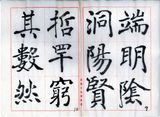 端明陰
洞陽賢
哲罕窮
其數然